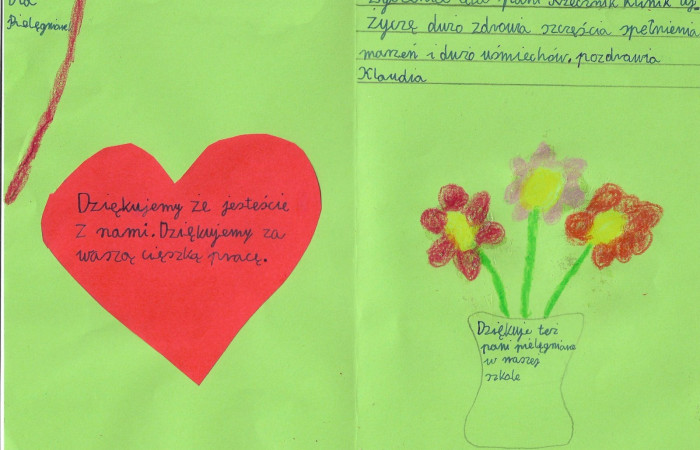 Dla
Pielęgniarek
życzę dużo zdrowia szczęścia spełnienia
marzeń i dużo uśmiechów. pozdrawia
Klaudia
Dziękujemy że jesteście
z nami. Dziękujemy za
waszą cięszką pracę.
Dziękuje też
pani pielęgniarce
w naszej
szkole